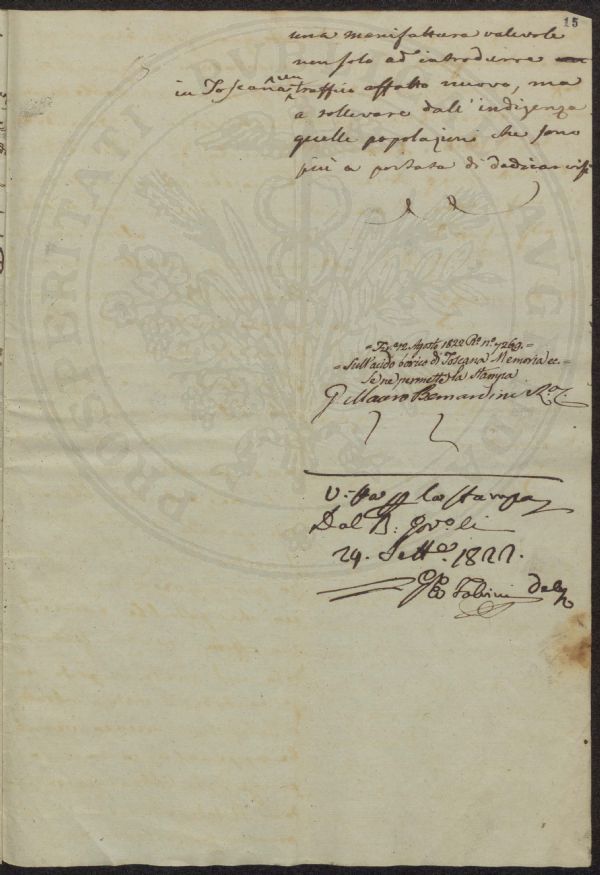 15
una manifattura valevole
non solo ad introdurre
in Toscana un traffico affatto nuovo, ma
a sollevare dall'indigenza
quelle popolazioni che sono
più a portata di dedicarvisi
12 Agosto 1822 n.º 7269.
Sull'acido borico di Toscana Memoria ec.
Se ne permette la Stampa
G. Mauro Bernardini
Vista la stampa
Dal B. Gov.
24. Sett.e 1822.
Fabrini
PROSPERITATI PUBLICAE AUGENDAE